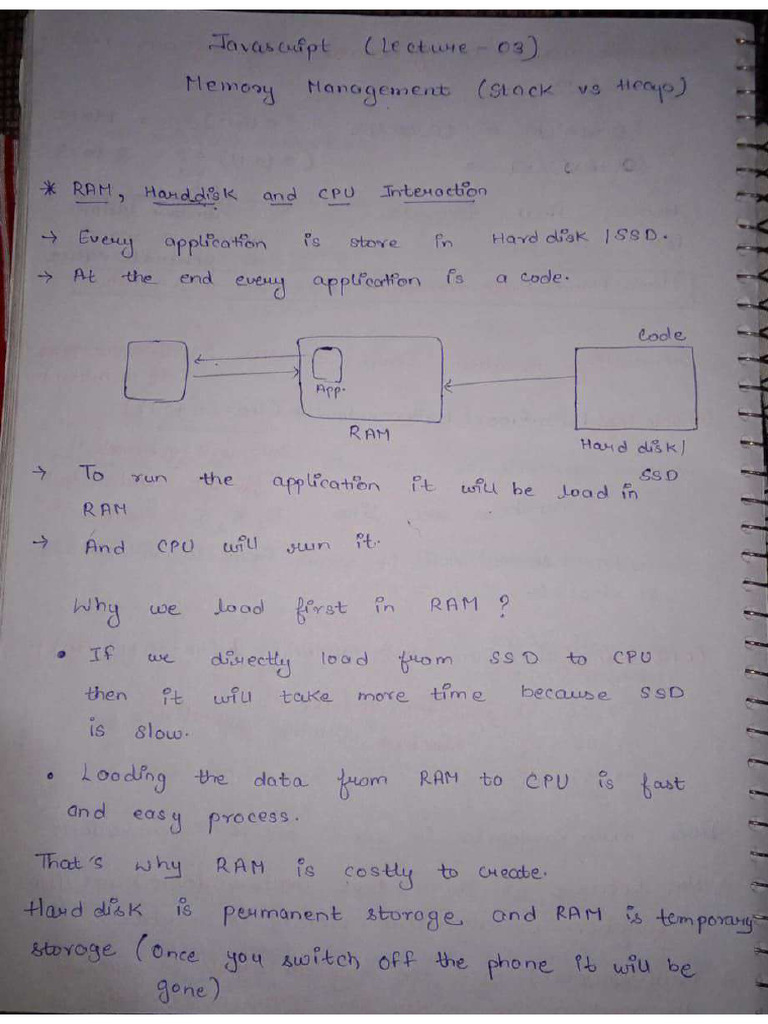 Javascript (Lecture - 03)
Memory Management (Stack vs Heap)
* RAM, Harddisk and CPU Interaction
→ Every application is store in Hard disk / SSD.
→ At the end every application is a code.
Code
App.
RAM
Hard disk /
SSD
→ To run the application it will be load in
RAM
→ And CPU will run it.
Why we load first in RAM ?
• If we directly load from SSD to CPU
then it will take more time because SSD
is slow.
• Loading the data from RAM to CPU is fast
and easy process.
That's why RAM is costly to create.
Hard disk is permanent storage and RAM is temporary
storage (Once you switch off the phone it will be
gone)